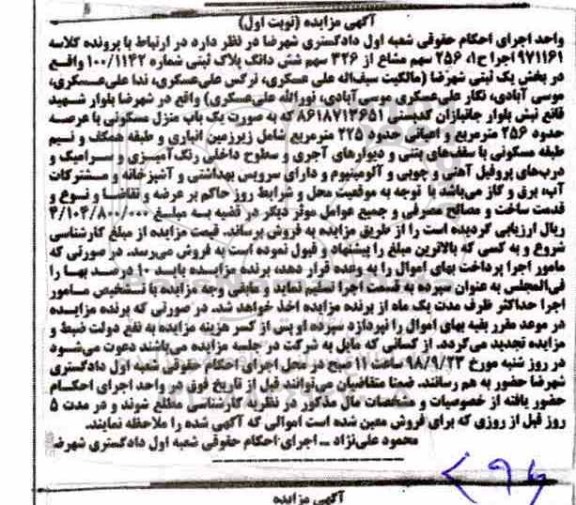 آگهی مزایده (نوبت اول)
واحد اجرای احکام حقوقی شعبه اول دادگستری شهرضا در نظر دارد در ارتباط با پرونده کلاسه
۹۷۱۱۶۱ اجرا ح۱، ۲۵۶ سهم مشاع از ۳۲۶ سهم شش دانگ پلاک ثبتی شماره ۱۰۰/۱۱۴۲ واقع
در بخش یک ثبتی شهرضا (مالکیت سیف‌اله علی عسکری، نرگس علی‌عسکری، ندا علی‌عسکری،
موسی آبادی، نگار علی‌عسکری موسی‌آبادی، نورالله علی‌عسکری) واقع در شهرضا بلوار شهید
قانع نبش بلوار جانبازان کدپستی ۸۶۱۸۷۱۳۶۵۱ که به صورت یک باب منزل مسکونی با عرصه
حدود ۲۵۶ مترمربع و اعیانی حدود ۲۲۵ مترمربع شامل زیرزمین انباری و طبقه همکف و نیم
طبقه مسکونی با سقف‌های بتنی و دیوارهای آجری و سطوح داخلی رنگ‌آمیزی و سرامیک و
درب‌های پروفیل آهنی و چوبی و آلومینیوم و دارای سرویس بهداشتی و آشپزخانه و مشترکات
آب، برق و گاز می‌باشد با توجه به موقعیت محل و شرایط روز حاکم بر عرضه و تقاضا و نوع و
قدمت ساخت و مصالح مصرفی و جمیع عوامل موثر دیگر در قضیه به مبلغ ۴/۱۰۴/۸۰۰/۰۰۰
ریال ارزیابی گردیده است را از طریق مزایده به فروش برساند. قیمت مزایده از مبلغ کارشناسی
شروع و به کسی که بالاترین مبلغ را پیشنهاد و قبول نموده است به فروش می‌رسد. در صورتی که
مامور اجرا پرداخت بهای اموال را به وعده قرار دهد، برنده مزایده باید ۱۰ درصد بها را
فی‌المجلس به عنوان سپرده به قسمت اجرا تسلیم نماید و مابقی وجه مزایده با تشخیص مامور
اجرا حداکثر ظرف مدت یک ماه از برنده مزایده اخذ خواهد شد. در صورتی که برنده مزایده
در موعد مقرر بقیه بهای اموال را نپردازد سپرده او پس از کسر هزینه مزایده به نفع دولت ضبط و
مزایده تجدید می‌گردد. از کسانی که مایل به شرکت در جلسه مزایده می‌باشند دعوت می‌شود
در روز شنبه مورخ ۹۸/۹/۲۳ ساعت ۱۱ صبح در محل اجرای احکام حقوقی شعبه اول دادگستری
شهرضا حضور به هم رسانند. ضمنا متقاضیان می‌توانند قبل از تاریخ فوق در واحد اجرای احکام
حضور یافته از خصوصیات و مشخصات مال مذکور در نظریه کارشناسی مطلع شوند و در مدت ۵
روز قبل از روزی که برای فروش معین شده است اموالی که آگهی شده را ملاحظه نمایند.
محمود علی‌نژاد ــ اجرای احکام حقوقی شعبه اول دادگستری شهرضا
آگهی مزایده